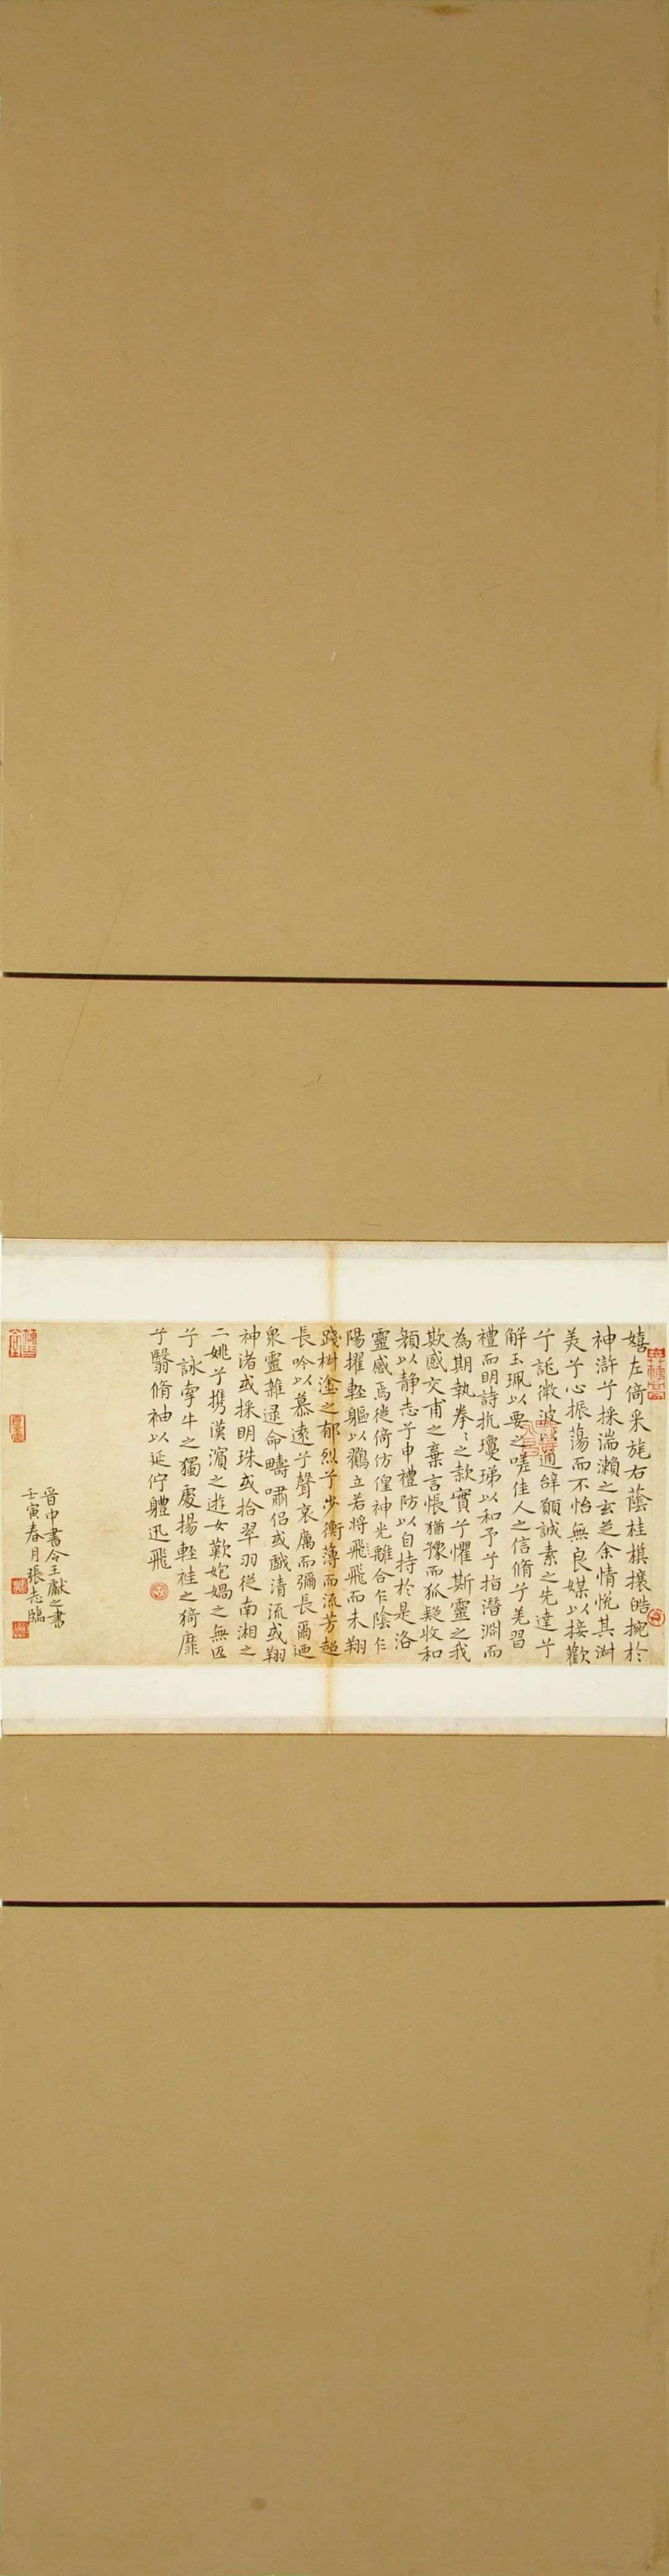 嬉左倚采旄右蔭桂棋攘皓捥於
神滸兮採湍瀨之玄芝余情悅其淋
美兮心振蕩而不怡無良媒以接歡
兮託微波以通辭願誠素之先達兮
解玉珮以要之嗟佳人之信脩兮羌習
禮而明詩抗瓊珶以和予兮指潛淵而
為期執拳〻之款實兮懼斯靈之我
欺感交甫之棄言悵猶豫而狐疑收和
顏以静志兮申禮防以自持於是洛
靈感焉徙倚仿偟神光離合乍陰乍
陽擢輕軀以鶴立若將飛而未翔
踐椒塗之郁烈兮步蘅薄而流芳超
長吟以慕遠兮聲哀厲而彌長爾迺
衆靈雜遝命疇嘯侶或戲清流或翔
神渚或採明珠或拾翠羽從南湘之
二姚兮携漢濱之遊女歎匏媧之無匹
兮詠牽牛之獨處揚輕袿之猗靡
兮翳脩袖以延佇體迅飛
晉中書令王獻之書
壬寅春月張志臨